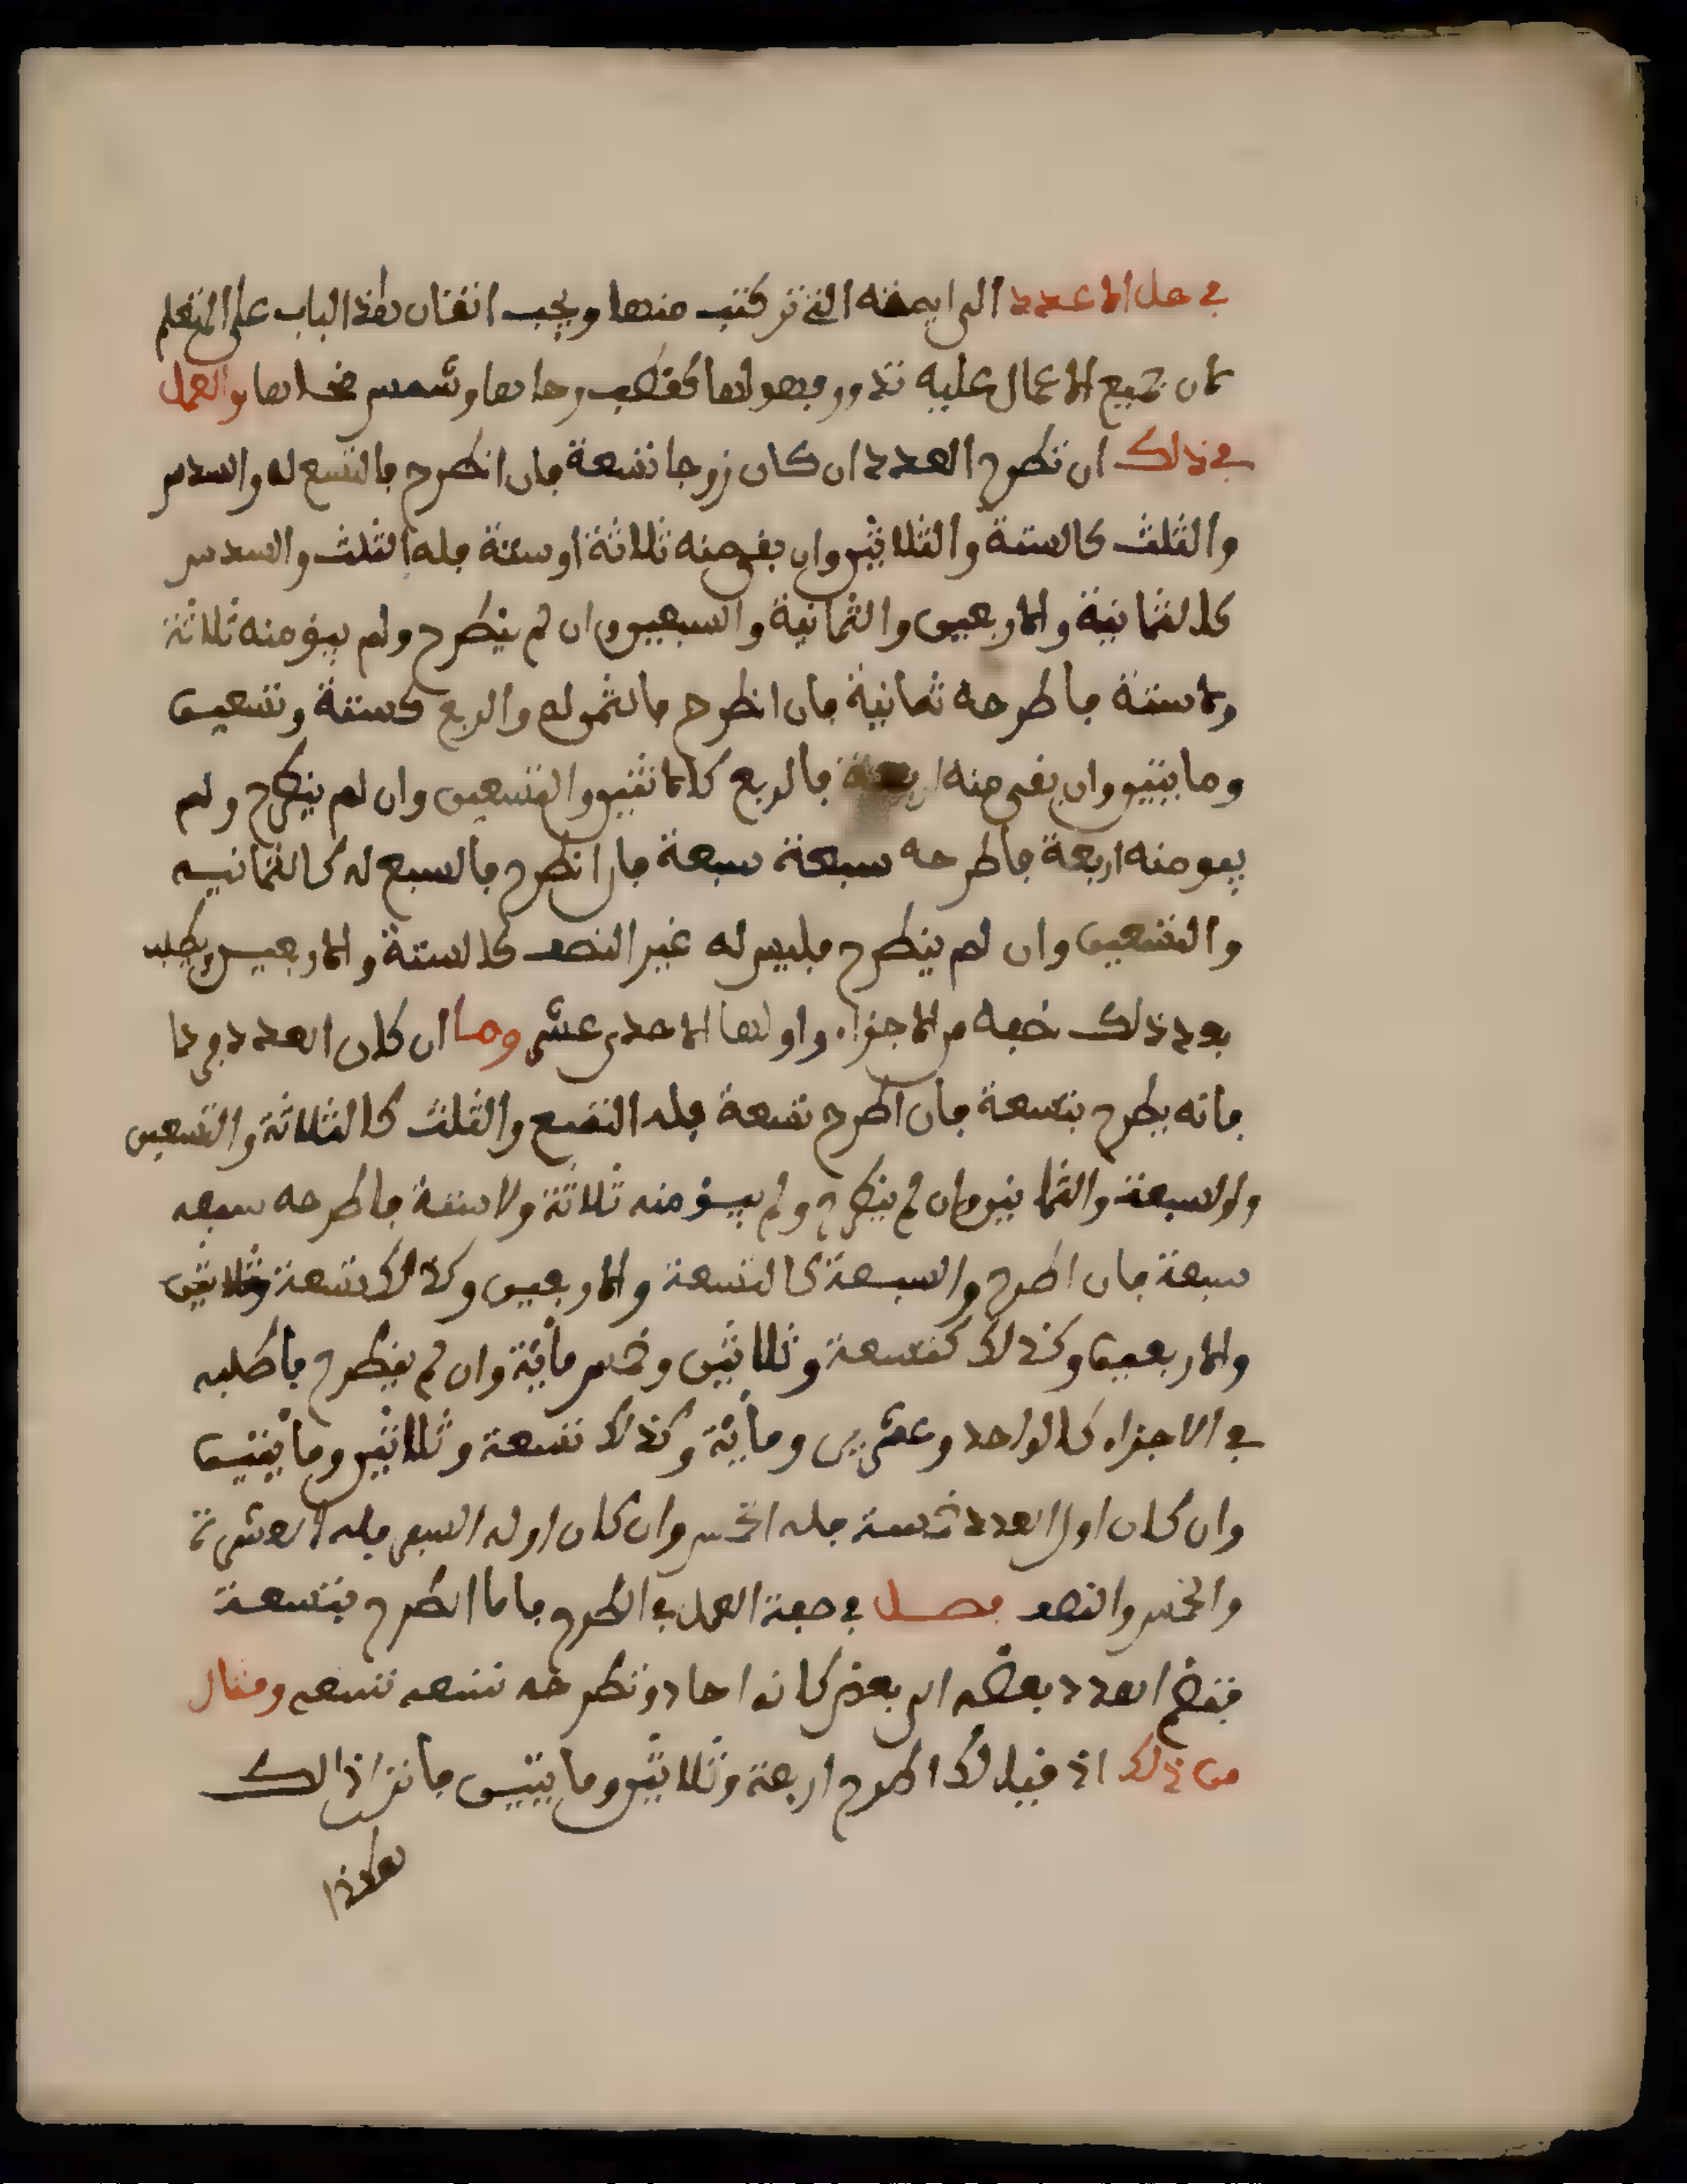 في حل الاعدد الى ايمته التي تركبت منها ويجب اتفان هذا الباب على المتعلم
لان جميع الاعمال عليه تدور وهو لها كفطب رحاها وشمس ضحاها والعمل
في ذلك ان تطرح العدد ان كان زوجا تسعة فان انطرح فالتسع له والسدس
والثلث كالستة والثلاثين وان بفى منه ثلاثة او ستة فله الثلث والسدس
كالثمانية والاربعين والثمانية والسبعين وان لم ينطرح ولم يبق منه ثلاثة
ولا ستة فاطرحه ثمانية فان انطرح فالثمن له والربع كستة وتسعين
ومايتين وان بفى منه اربعة فالربع كالاثنين والتسعين وان لم ينطرح ولم
يبق منه اربعة فاطرحه سبعة سبعة فان انطرح فالسبع له كالثمانيه
والتسعين وان لم ينطرح فليس له غير النصف كالستة والاربعين ويطلب
بعد ذلك نصفه من الاجزاء واولها الاحدى عشر وما ان كان العدد فردا
فانه يطرح بتسعة فان اطرح تسعة فله التسع والثلث كالثلاثة والتسعين
والسبعة والثمانين وان لم ينطرح ولم يبق منه ثلاثة ولا ستة فاطرحه سبعه
سبعة فان اطرح والسبعة كالتسعة والاربعين وكذلك تسعة وثلاثين
والاربعين وكذلك كتسعة وثلاثين وخمس مأية وان لم ينطرح فاطلبه
في الاجزاء كالواحد وعشرين ومأية وكذلك تسعة وثلاثين ومأيتين
وان كان اول العدد خمسة فله الخمس وان كان اوله السفر فله العشرة
والخمس والنصف فصل في صفة العمل في الطرح فاما الطرح بتسعة
فتضم العدد بعضه الى بعض كانه احاد وتطرحه تسعه تسعه ومثال
من ذلك اذ فيل لك اطرح اربعة وثلاثين ومايتين فانزل ذالك
هاكذا